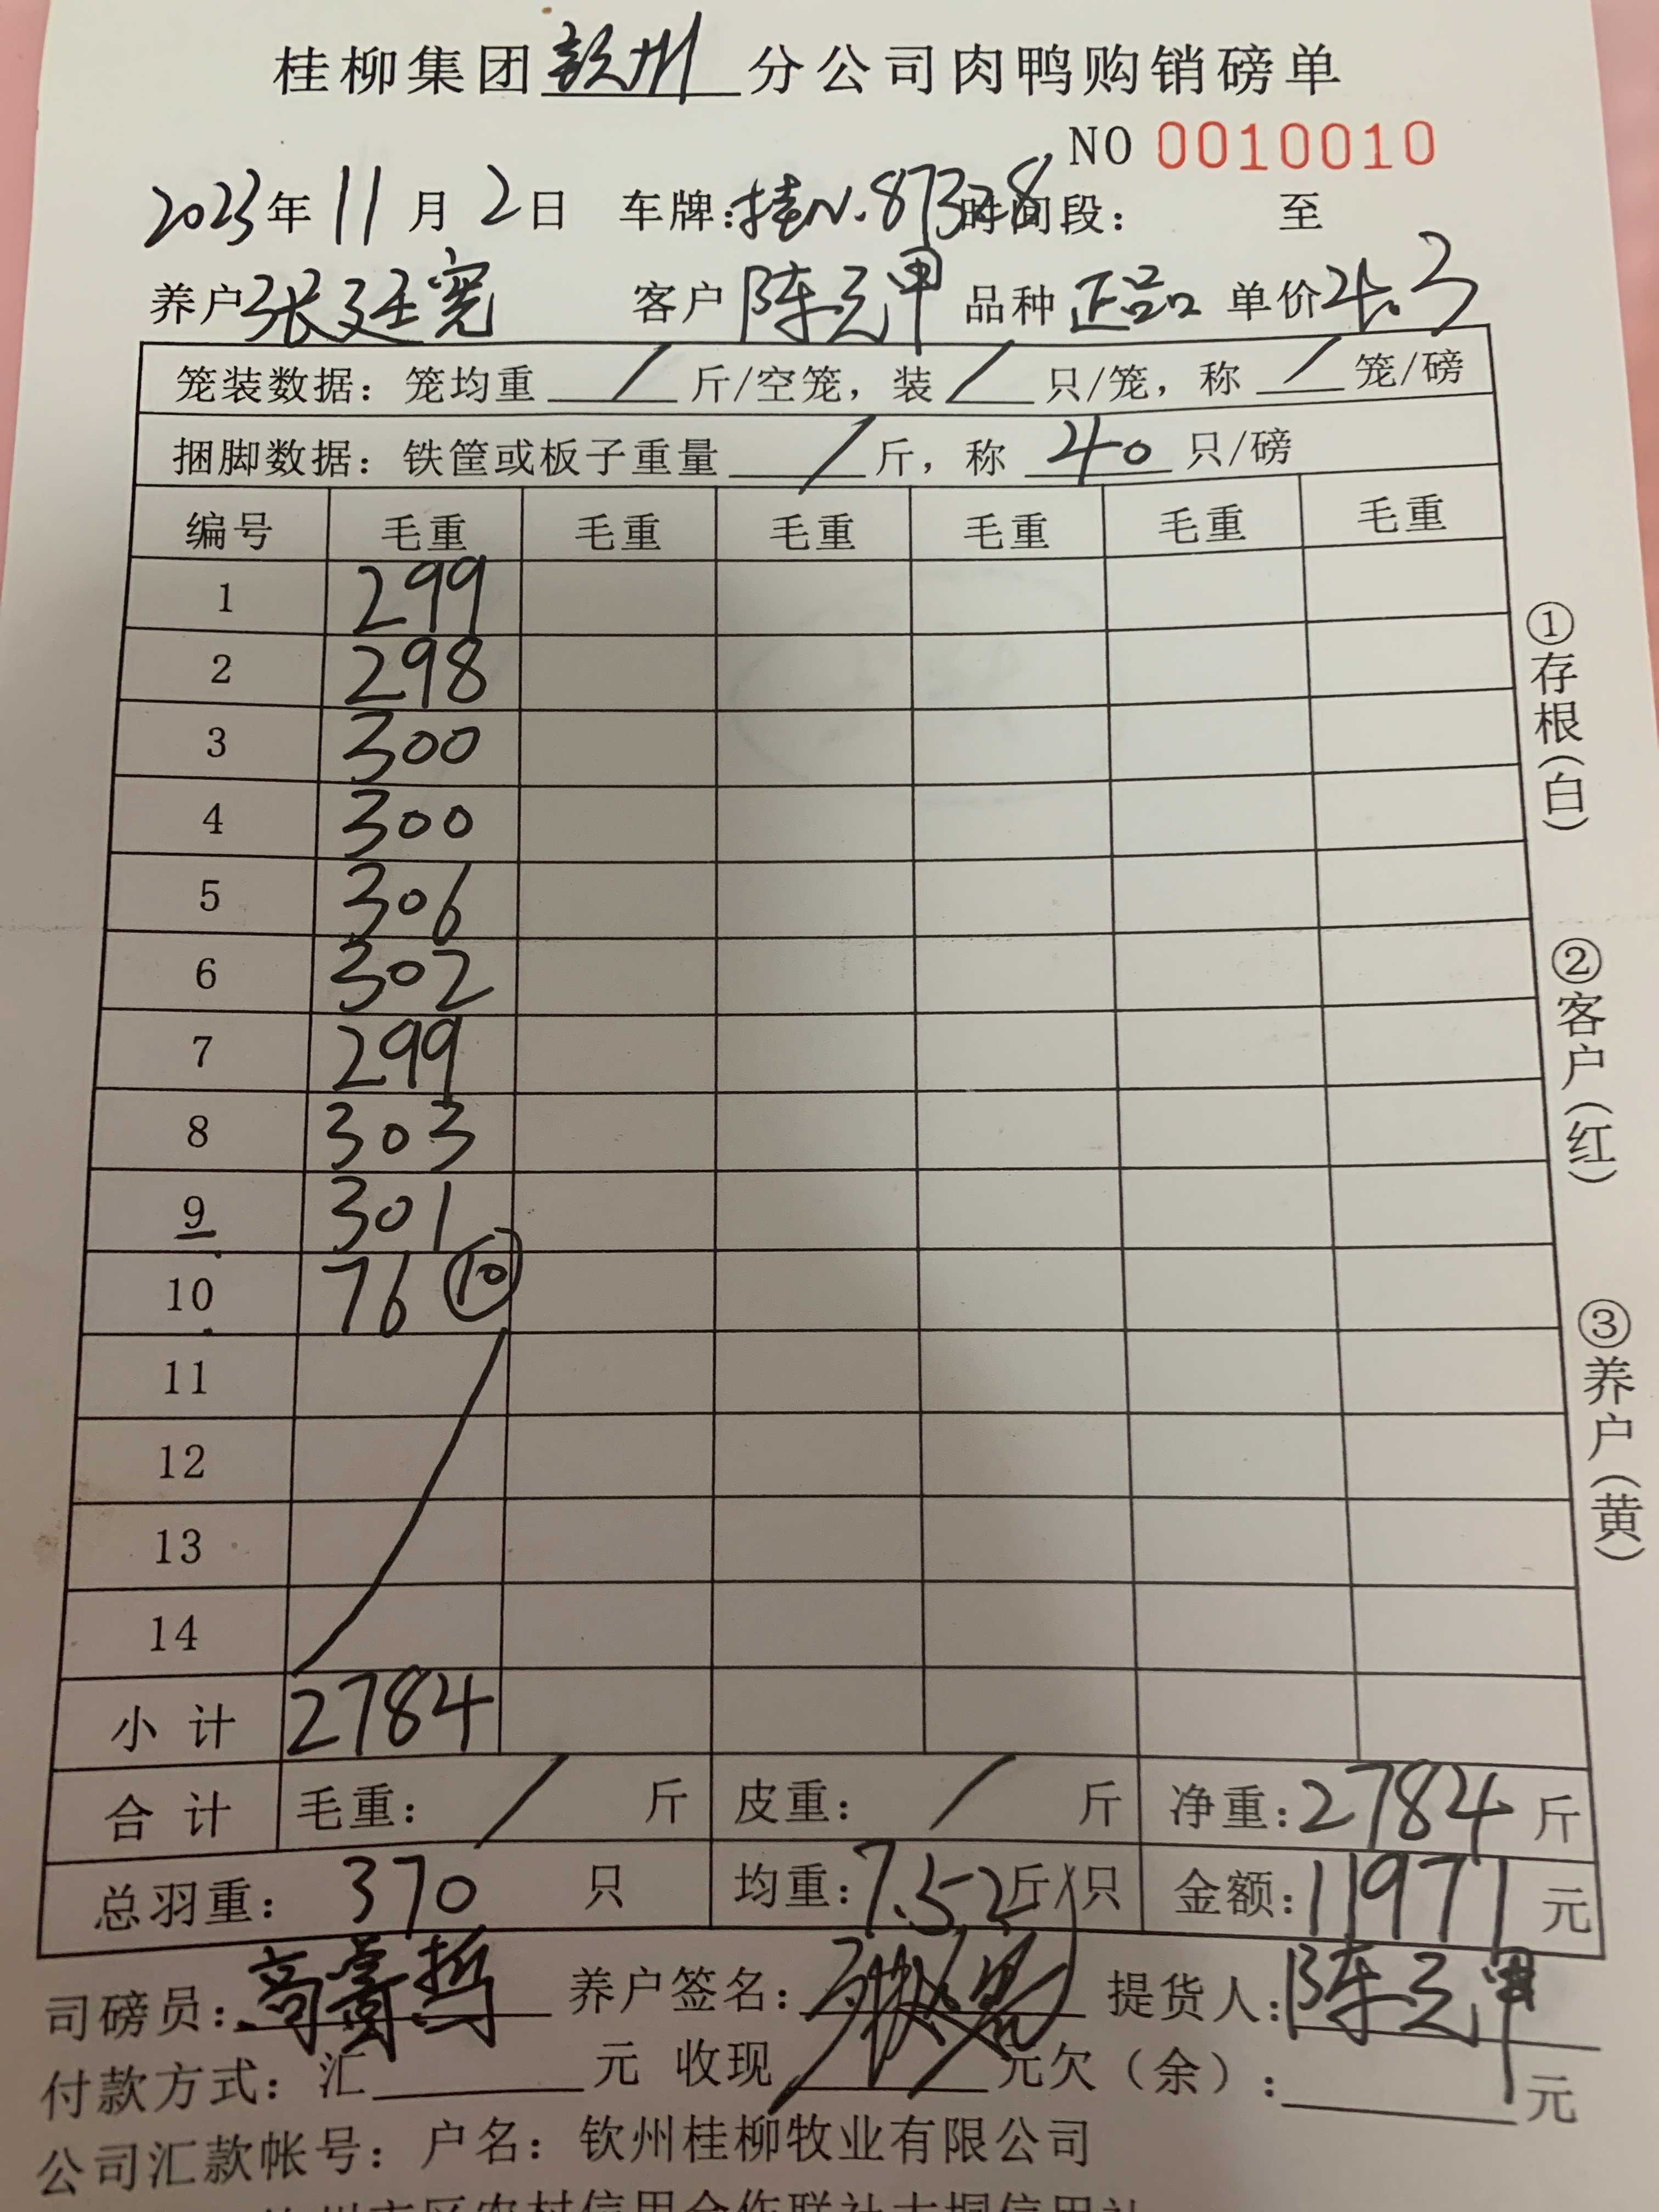 桂柳集团钦州分公司肉鸭购销磅单
NO 0010010
2023年11月2日 车牌:桂N.87328时间段: 至
养户张廷宽 客户陈元甲 品种正品 单价4.3
笼装数据: 笼均重 / 斤/空笼, 装 / 只/笼, 称 / 笼/磅
捆脚数据: 铁筐或板子重量 / 斤, 称 40 只/磅
编号 毛重 毛重 毛重 毛重 毛重 毛重
1 299
2 298
3 300
4 300
5 306
6 302
7 299
8 303
9 301
10 76 ⑩
11
12
13
14
小计 2784
合计 毛重: / 斤 皮重: / 斤 净重:2784斤
总羽重: 370 只 均重:7.52斤/只 金额:11971元
①存根(白)
②客户(红)
③养户(黄)
司磅员: 养户签名: 提货人:陈元甲
付款方式: 汇 元 收现 元欠(余): 元
公司汇款帐号: 户名: 钦州桂柳牧业有限公司